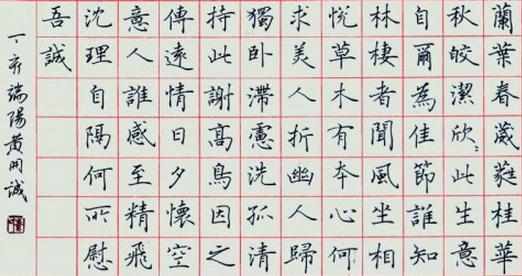 蘭葉春葳蕤桂華
秋皎潔欣〻此生意
自爾為佳節誰知
林棲者聞風坐相
悅草木有夲心何
求美人折幽人歸
獨卧滯慮洗孤清
持此謝高鳥因之
傳遠情日夕懷空
意人誰感至精飛
沈理自隔何所慰
吾誠
丁亥端陽黃開誠